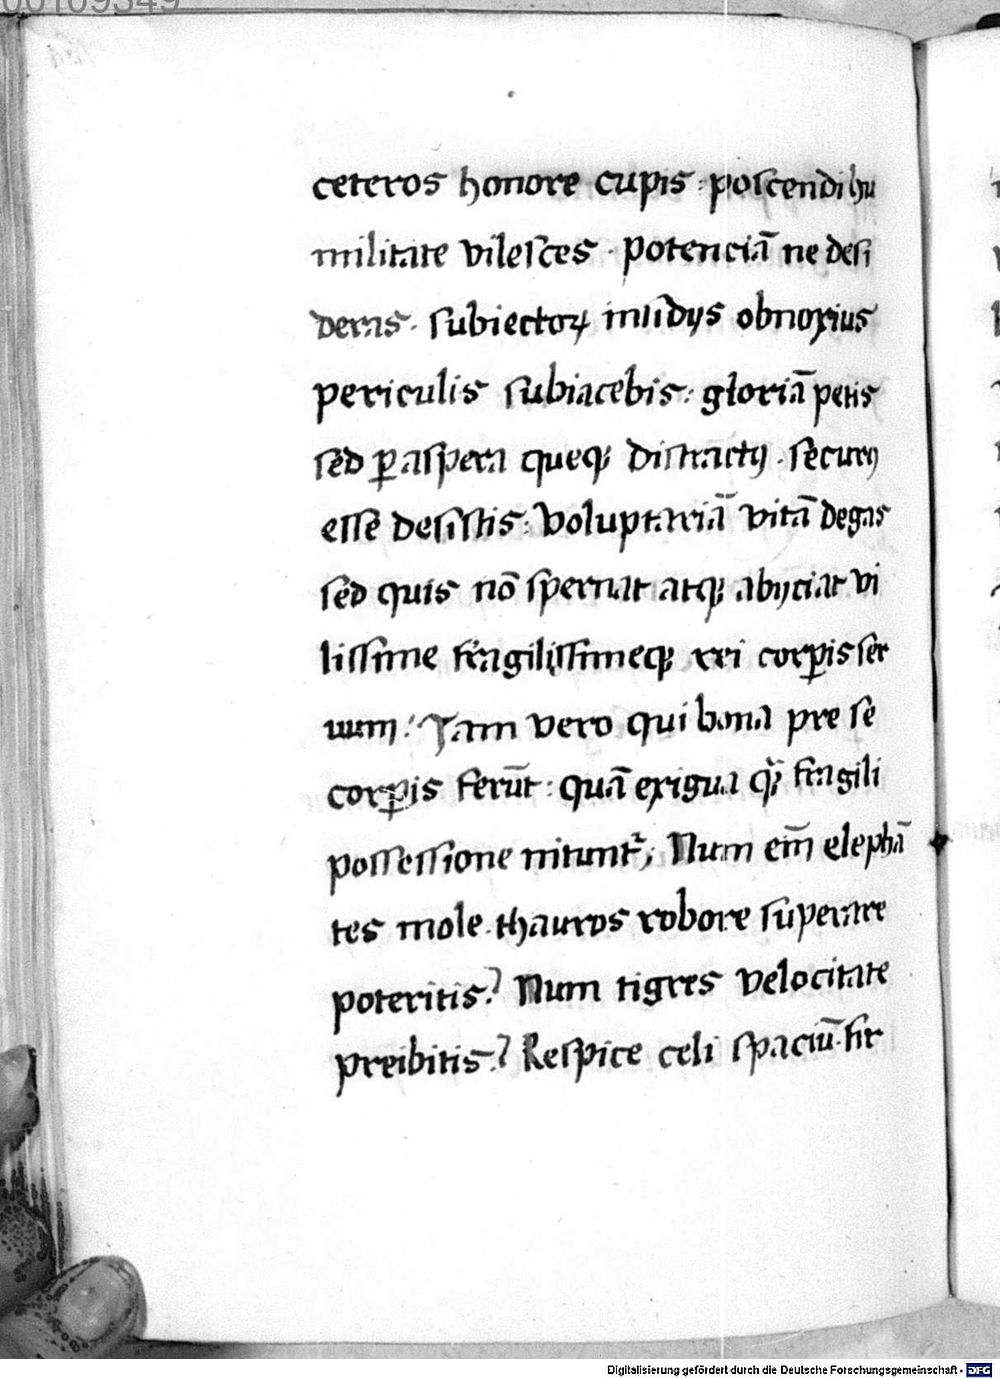 00109349
ceteros honore cupis : poscendi hu
militate vilesces . potenciā ne desi
deras . subiectoꝝ insidijs obnoxius
periculis subiacebis : gloriā petis
sed ꝑ aspera queqꝫ distractꝰ . securꝰ
esse desistis : voluptariā vitā degas
sed quis nō spernat atqꝫ abijciat vi
lissime fragilissimeqꝫ rei corꝑis ser
uum ! Iam vero qui bona pre se
corꝑis ferūt : quā exigua qͣꝫ fragili
possessione nitunt᷑; Num eīn elephā
tes mole . thauros robore superare
poteritis ? Num tigres velocitate
preibitis ? Respice celi spaciū . fir
Digitalisierung gefördert durch die Deutsche Forschungsgemeinschaft - DFG